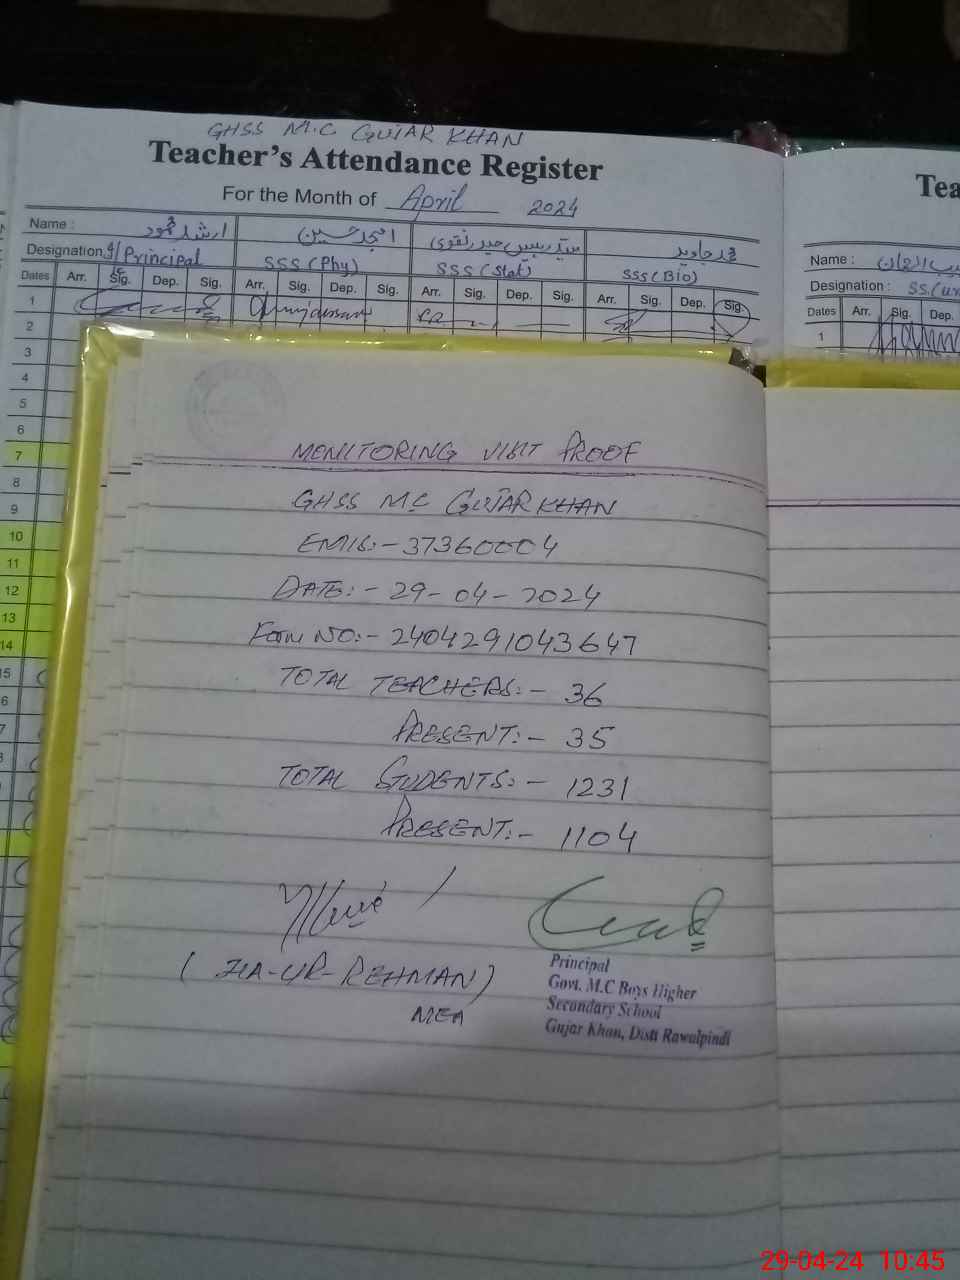 GHSS M.C GUJAR KHAN
Teacher's Attendance Register
For the Month of April 2024
Name : ارشد محمود امجد حسین سید رئیس حیدر نقوی محمد جاوید
Designation I/Principal SSS (Phy) SSS (Stat) SSS (Bio)
Dates Arr. Sig. Dep. Sig. Arr. Sig. Dep. Sig. Arr. Sig. Dep. Sig. Arr. Sig. Dep. Sig.
1
2
3
4
5
6
7
8
9
10
11
12
13
14
15
Tea
Name :
Designation :
Dates Arr. Sig. Dep.
1
MONITORING VISIT PROOF
GHSS M.C GUJAR KHAN
EMIS:- 37360004
DATE:- 29-04-2024
Form NO:- 2404291043647
TOTAL TEACHERS:- 36
PRESENT:- 35
TOTAL STUDENTS:- 1231
PRESENT:- 1104
(ZIA-UR-REHMAN)
MEA
Principal
Govt. M.C Boys Higher
Secondary School
Gujar Khan, Distt Rawalpindi
29-04-24 10:45